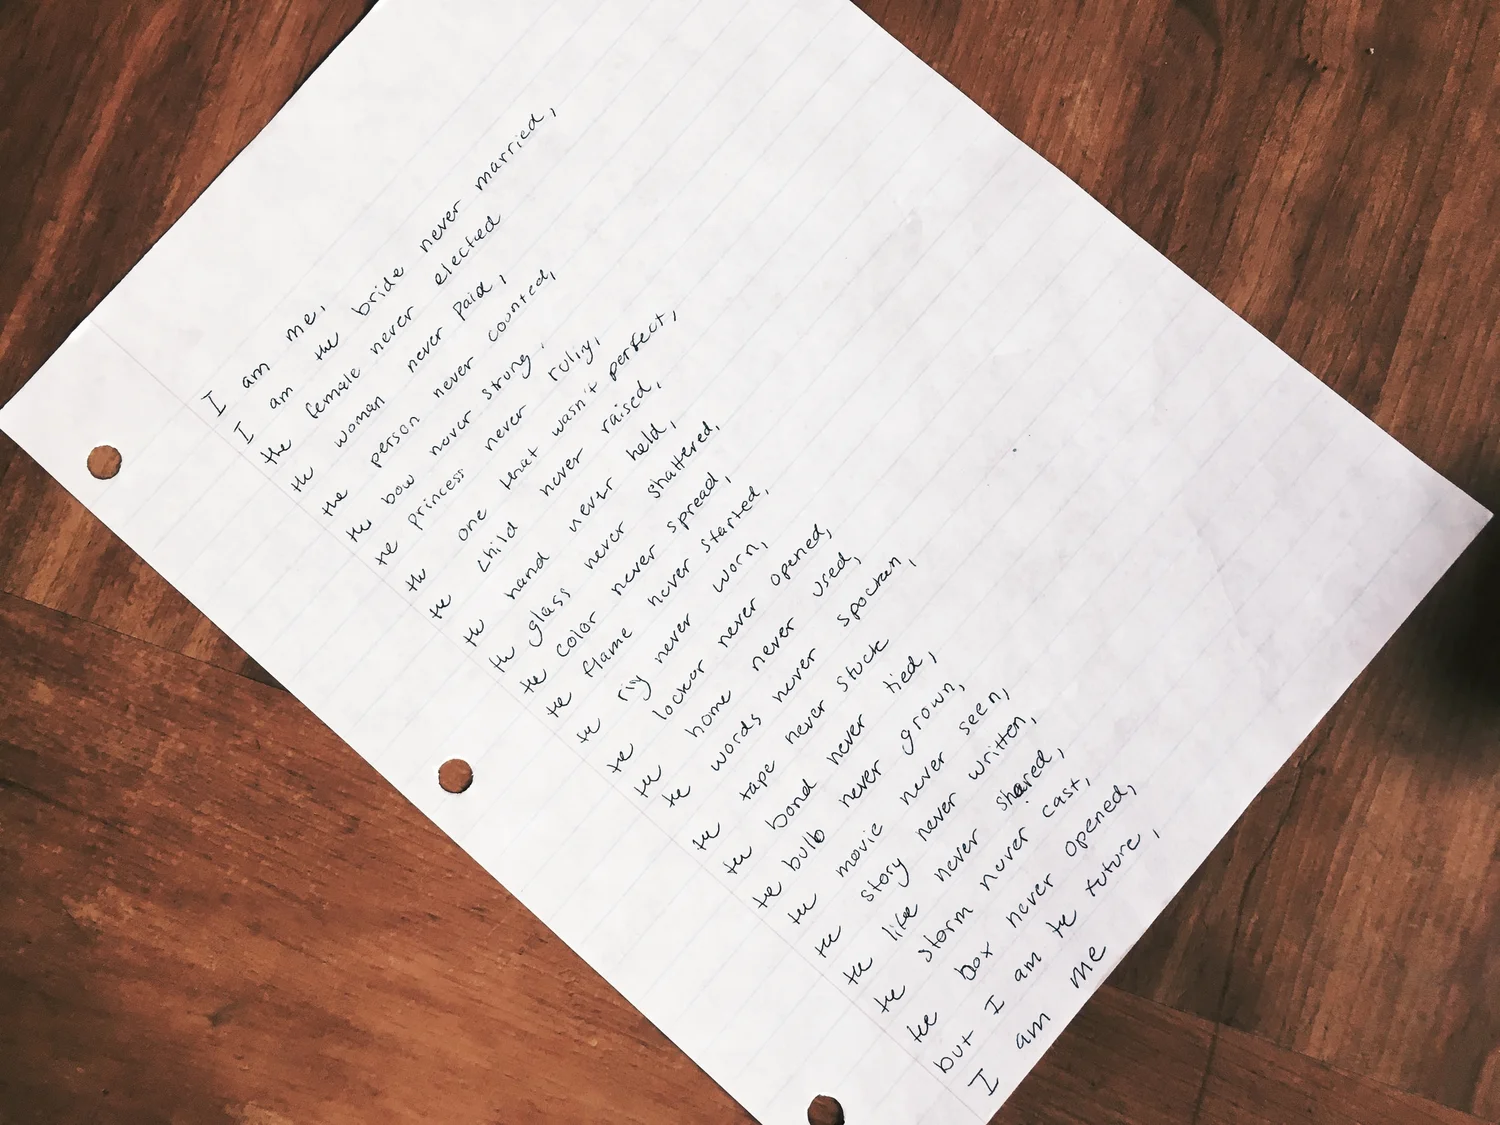 I am me,
I am the bride never married,
the female never elected
the woman never paid,
the person never counted,
the bow never strung,
the princess never
the one that wasn't perfect,
the child never raised,
the hand never held,
the glass never shattered,
the color never spread,
the flame never started,
the never worn,
the locker never opened,
the home never used,
the words never spocken,
the tape never stuck
the bond never tied,
the bulb never grown,
the movie never seen,
the story never written,
the like never shared,
the storm never cast,
the box never opened,
but I am the future,
I am me